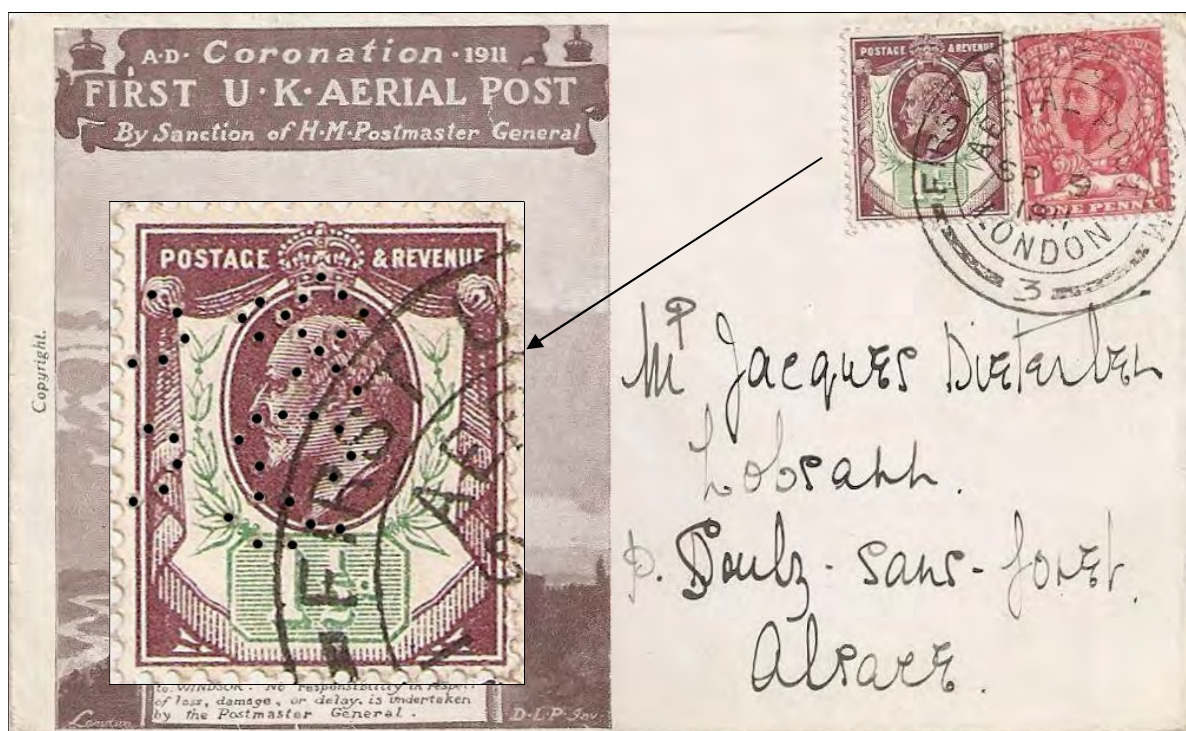 A·D· Coronation ·1911
FIRST U·K·AERIAL POST
By Sanction of H·M·Postmaster General
Copyright.
POSTAGE & REVENUE
FIRST
AERIAL
to WINDSOR. No responsibility in respect
of loss, damage, or delay, is undertaken
by the Postmaster General.
London
D·L·P·Inv.
POSTAGE & REVENUE
ONE PENNY
FIRST
AERIAL POST
SP 9
1911
LONDON
3
Mr Jacques
Lobsann.
p. Soultz - sans - foret.
Alsace.